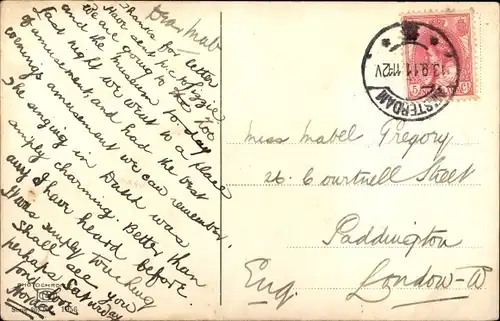 Dear Mab
Thanks for letter
Have sent pic to Lizzie
We are going to the Zoo
and the museum to-day
Last night we went to a place
of amusement and had the best
evenings amusement we can remember,
The singing in Dutch was
simply charming. Better than
any I have heard before.
It was simply touching
Shall see you
perhaps Saturday
fond love
PHOTOCHROM
Miss Mabel Gregory
26. Courtnell Street
Paddington
London-W
Eng.
AMSTERDAM
13.9.11.11-12V
5